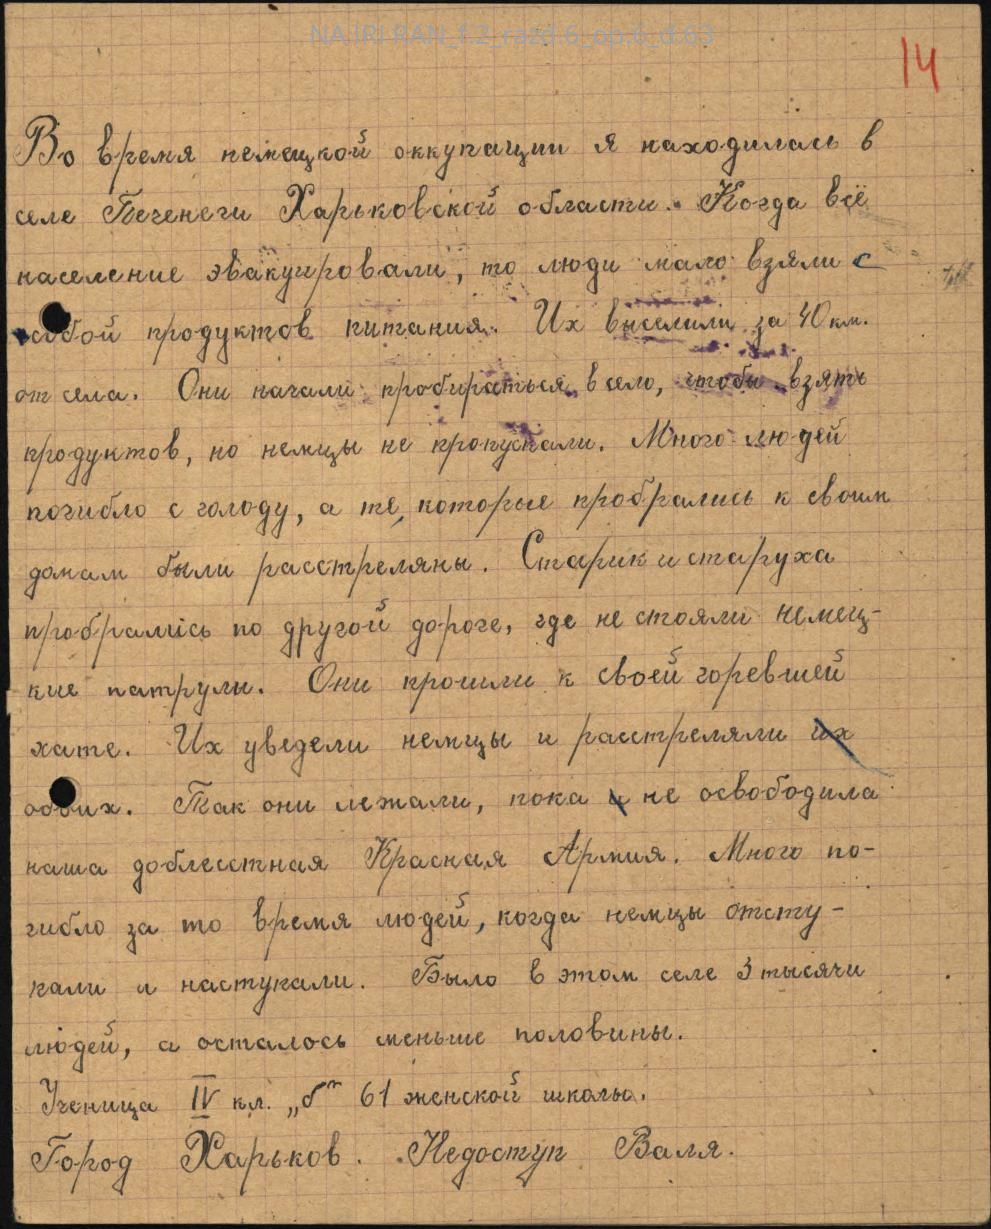 NA IRI RAN_f.2_razd.6_op.6_d.63
14
Во время немецкой оккупации я находилась в
селе Печенеги Харьковской области. Когда всё
население эвакуировали, то люди мало взяли с
собой продуктов питания. Их выселили за 40 км.
от села. Они начали пробираться в село, чтобы взять
продуктов, но немцы не пропускали. Много людей
погибло с голоду, а те, которые пробрались к своим
домам были расстреляны. Старик и старуха
пробрались по другой дороге, где не стояли немец-
кие патрули. Они прошли к своей горевшей
хате. Их уведели немцы и расстреляли их
обоих. Так они лежали, пока и не освободила
наша доблесстная Красная Армия. Много по-
гибло за то время людей, когда немцы отсту-
пали и наступали. Было в этом селе 3 тысячи
людей, а осталось меньше половины.
Ученица IV кл. „б" 61 женской школы.
Город Харьков. Недоступ Валя.